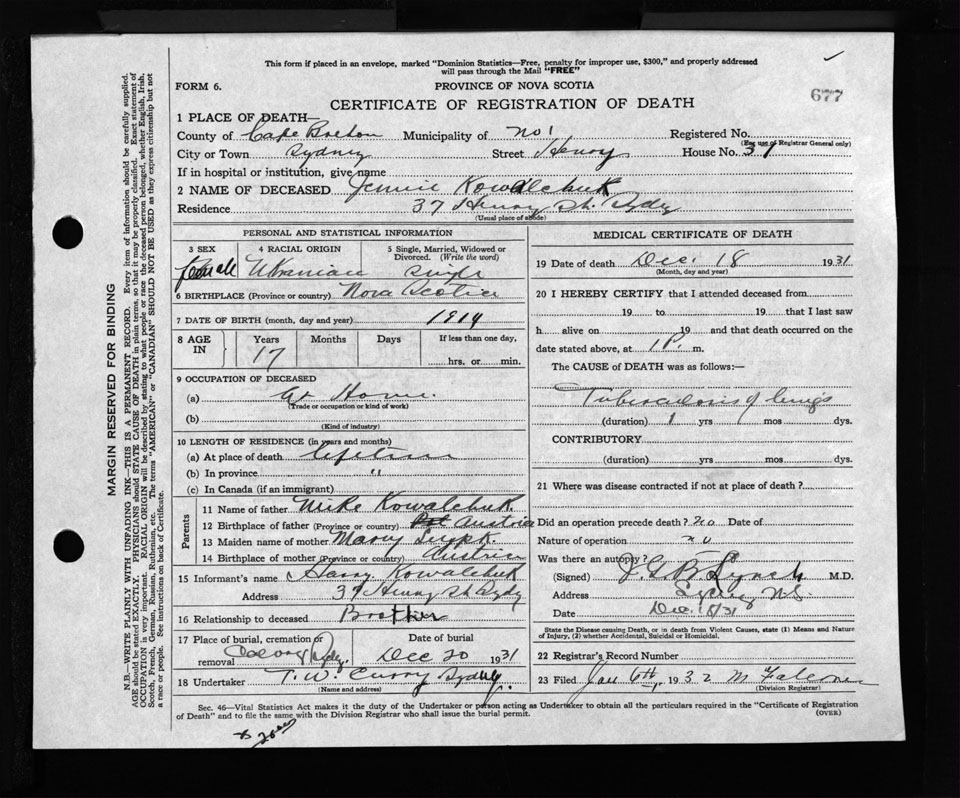 This form if placed in an envelope, marked "Dominion Statistics—Free, penalty for improper use, $300," and properly addressed
will pass through the Mail "FREE"
FORM 6.
PROVINCE OF NOVA SCOTIA
677
CERTIFICATE OF REGISTRATION OF DEATH
1 PLACE OF DEATH—
County of Cape Breton Municipality of No 1 Registered No.
(For use of Registrar General only)
City or Town Sydney Street Henry House No. 37
If in hospital or institution, give name
2 NAME OF DECEASED Jennie Kowalchuk
Residence 37 Henry St. Sydy
(Usual place of abode)
PERSONAL AND STATISTICAL INFORMATION
3 SEX 4 RACIAL ORIGIN 5 Single, Married, Widowed or
Divorced. (Write the word)
female Ukranian Single
6 BIRTHPLACE (Province or country) Nova Scotia
7 DATE OF BIRTH (month, day and year) 1914
8 AGE IN Years Months Days If less than one day,
17 hrs. or min.
9 OCCUPATION OF DECEASED
(a) At Home.
(Trade or occupation or kind of work)
(b)
(Kind of industry)
10 LENGTH OF RESIDENCE (in years and months)
(a) At place of death lifetime
(b) In province "
(c) In Canada (if an immigrant)
Parents
11 Name of father Mike Kowalchuk
12 Birthplace of father (Province or country) Austria
13 Maiden name of mother Mary
14 Birthplace of mother (Province or country) Austria
15 Informant's name Harry Kowalchuk
Address 37 Henry St Sydy
16 Relationship to deceased Brother
17 Place of burial, cremation or Date of burial
removal Sydy. Dec 20 1931
18 Undertaker T. W. Curry Sydney.
(Name and address)
MEDICAL CERTIFICATE OF DEATH
19 Date of death Dec. 18 1931
(Month, day and year)
20 I HEREBY CERTIFY that I attended deceased from
19 to 19 that I last saw
h alive on 19 and that death occurred on the
date stated above, at 1 P. m.
The CAUSE of DEATH was as follows:—
Tuberculosis of lungs
(duration) 1 yrs mos dys.
CONTRIBUTORY
(duration) yrs mos dys.
21 Where was disease contracted if not at place of death?
Did an operation precede death? no Date of
Nature of operation no
Was there an autopsy?
(Signed) Lynch M.D.
Address Sydney N.S.
Date Dec. 18/31
State the Disease causing Death, or in death from Violent Causes, state (1) Means and Nature
of Injury, (2) whether Accidental, Suicidal or Homicidal.
22 Registrar's Record Number
23 Filed Jan 6th, 1932 M Falconer
(Division Registrar)
Sec. 46—Vital Statistics Act makes it the duty of the Undertaker or person acting as Undertaker to obtain all the particulars required in the "Certificate of Registration
of Death" and to file the same with the Division Registrar who shall issue the burial permit.
(OVER)
MARGIN RESERVED FOR BINDING
N.B.—WRITE PLAINLY WITH UNFADING INK—THIS IS A PERMANENT RECORD. Every item of information should be carefully supplied.
AGE should be stated EXACTLY. PHYSICIANS should STATE CAUSE OF DEATH in plain terms, so that it may be properly classified. Exact statement of
OCCUPATION is very important. RACIAL ORIGIN will be described by stating to what people or race the deceased person belonged, whether English, Irish,
Scotch, French, German, Russian, Ruthenian, etc. The terms "AMERICAN" or "CANADIAN" SHOULD NOT BE USED as they express citizenship but not
a race or people. See instructions on back of Certificate.